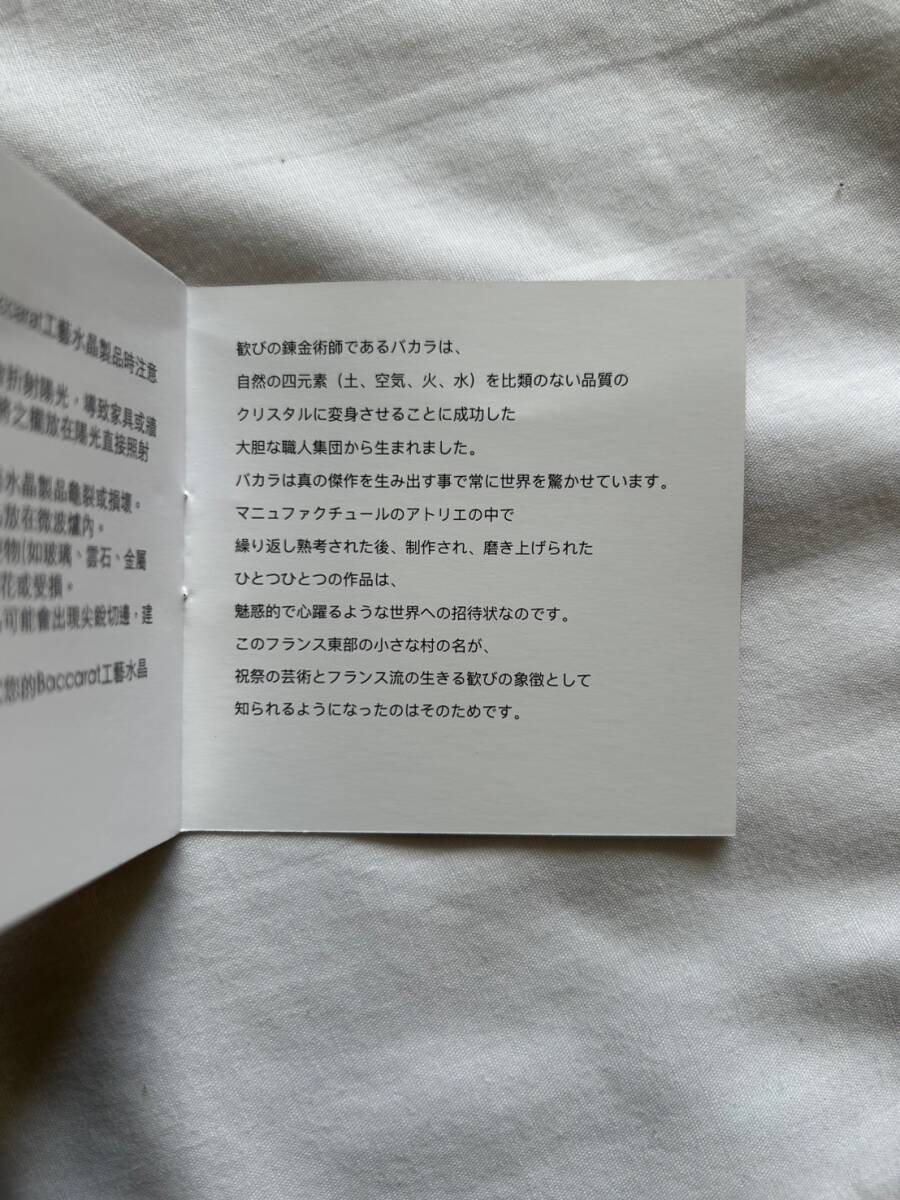 accarat工藝水晶製品時注意
折射陽光，導致家具或牆
將之擺放在陽光直接照射
水晶製品龜裂或損壞。
放在微波爐內。
物(如玻璃、雲石、金屬
花或受損。
可能會出現尖銳切邊，建
您的Baccarat工藝水晶
歓びの錬金術師であるバカラは、
自然の四元素（土、空気、火、水）を比類のない品質の
クリスタルに変身させることに成功した
大胆な職人集団から生まれました。
バカラは真の傑作を生み出す事で常に世界を驚かせています。
マニュファクチュールのアトリエの中で
繰り返し熟考された後、制作され、磨き上げられた
ひとつひとつの作品は、
魅惑的で心躍るような世界への招待状なのです。
このフランス東部の小さな村の名が、
祝祭の芸術とフランス流の生きる歓びの象徴として
知られるようになったのはそのためです。